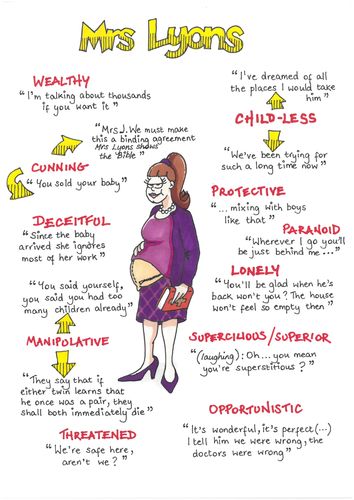 Mrs Lyons
WEALTHY
"I'm talking about thousands
if you want it"
"Mrs J. We must make
this a binding agreement
Mrs Lyons shows
the 'Bible'"
CUNNING
"You sold your baby"
DECEITFUL
"Since the baby
arrived she ignores
most of her work"
"You said yourself,
you said you had too
many children already"
MANIPULATIVE
"They say that if
either twin learns that
he once was a pair, they
shall both immediately die"
THREATENED
"We're safe here,
aren't we?"
"I've dreamed of all
the places I would take
him"
CHILD-LESS
"We've been trying for
such a long time now"
PROTECTIVE
"... mixing with boys
like that"
PARANOID
"Wherever I go you'll
be just behind me..."
LONELY
"You'll be glad when he's
back won't you? The house
won't feel so empty then"
SUPERCILIOUS/SUPERIOR
"(laughing): Oh... you mean
you're superstitious?"
OPPORTUNISTIC
"It's wonderful, it's perfect (...)
I tell him we were wrong, the
doctors were wrong"